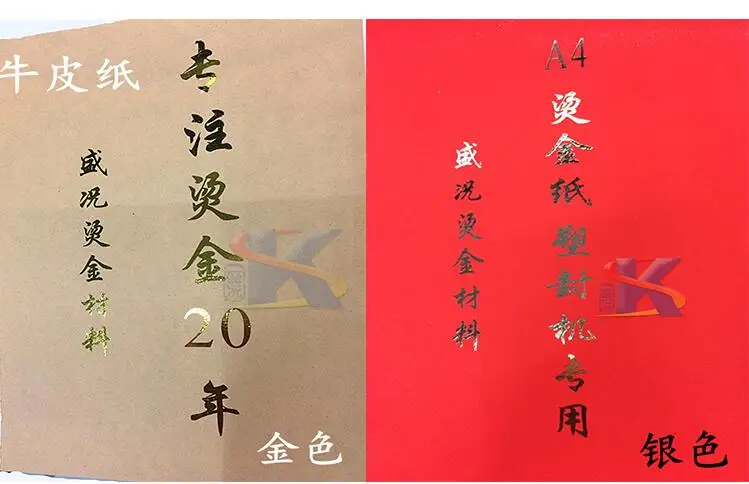 牛皮纸
专注烫金20年
盛况烫金材料
金色
A4烫金纸塑封机专用
盛况烫金材料
银色